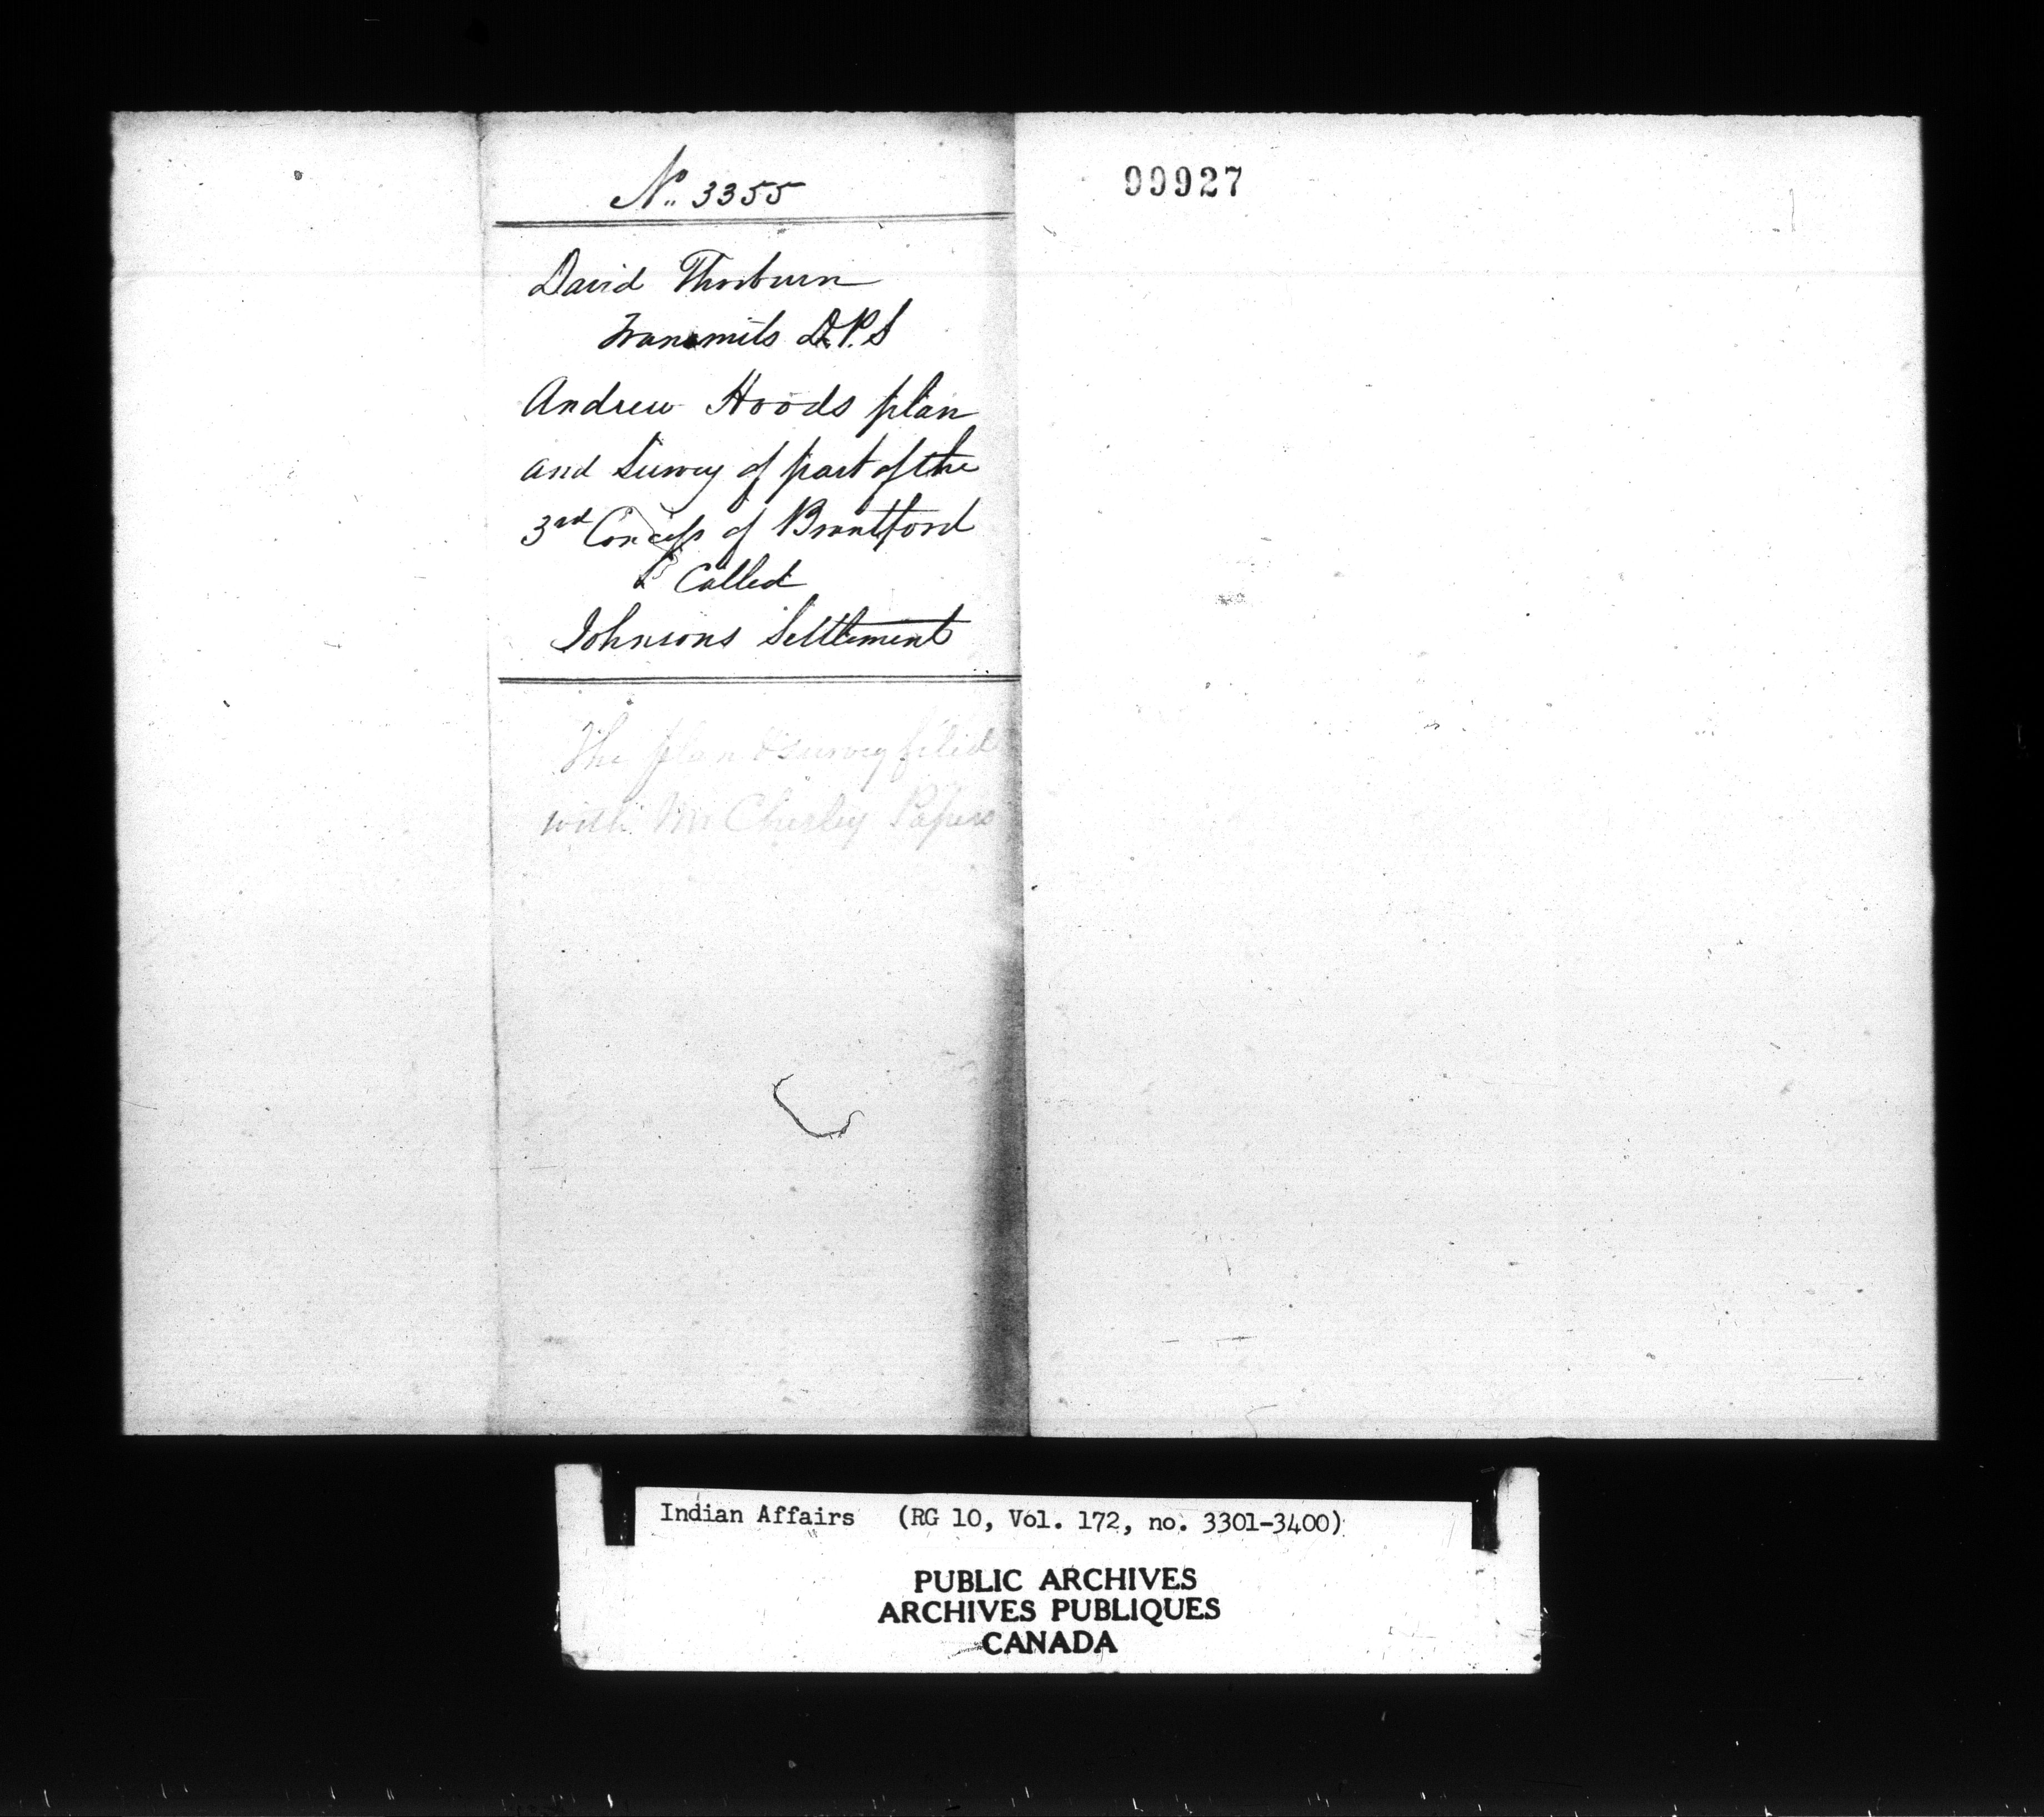 No. 3355
David Thorburn
Transmits D.P.S
Andrew Hoods plan
and Survey of part of the
3rd Concess of Brantford
Called
Johnsons Settlement
The plan & survey filed
with Papers
99927
Indian Affairs (RG 10, Vol. 172, no. 3301-3400)
PUBLIC ARCHIVES
ARCHIVES PUBLIQUES
CANADA